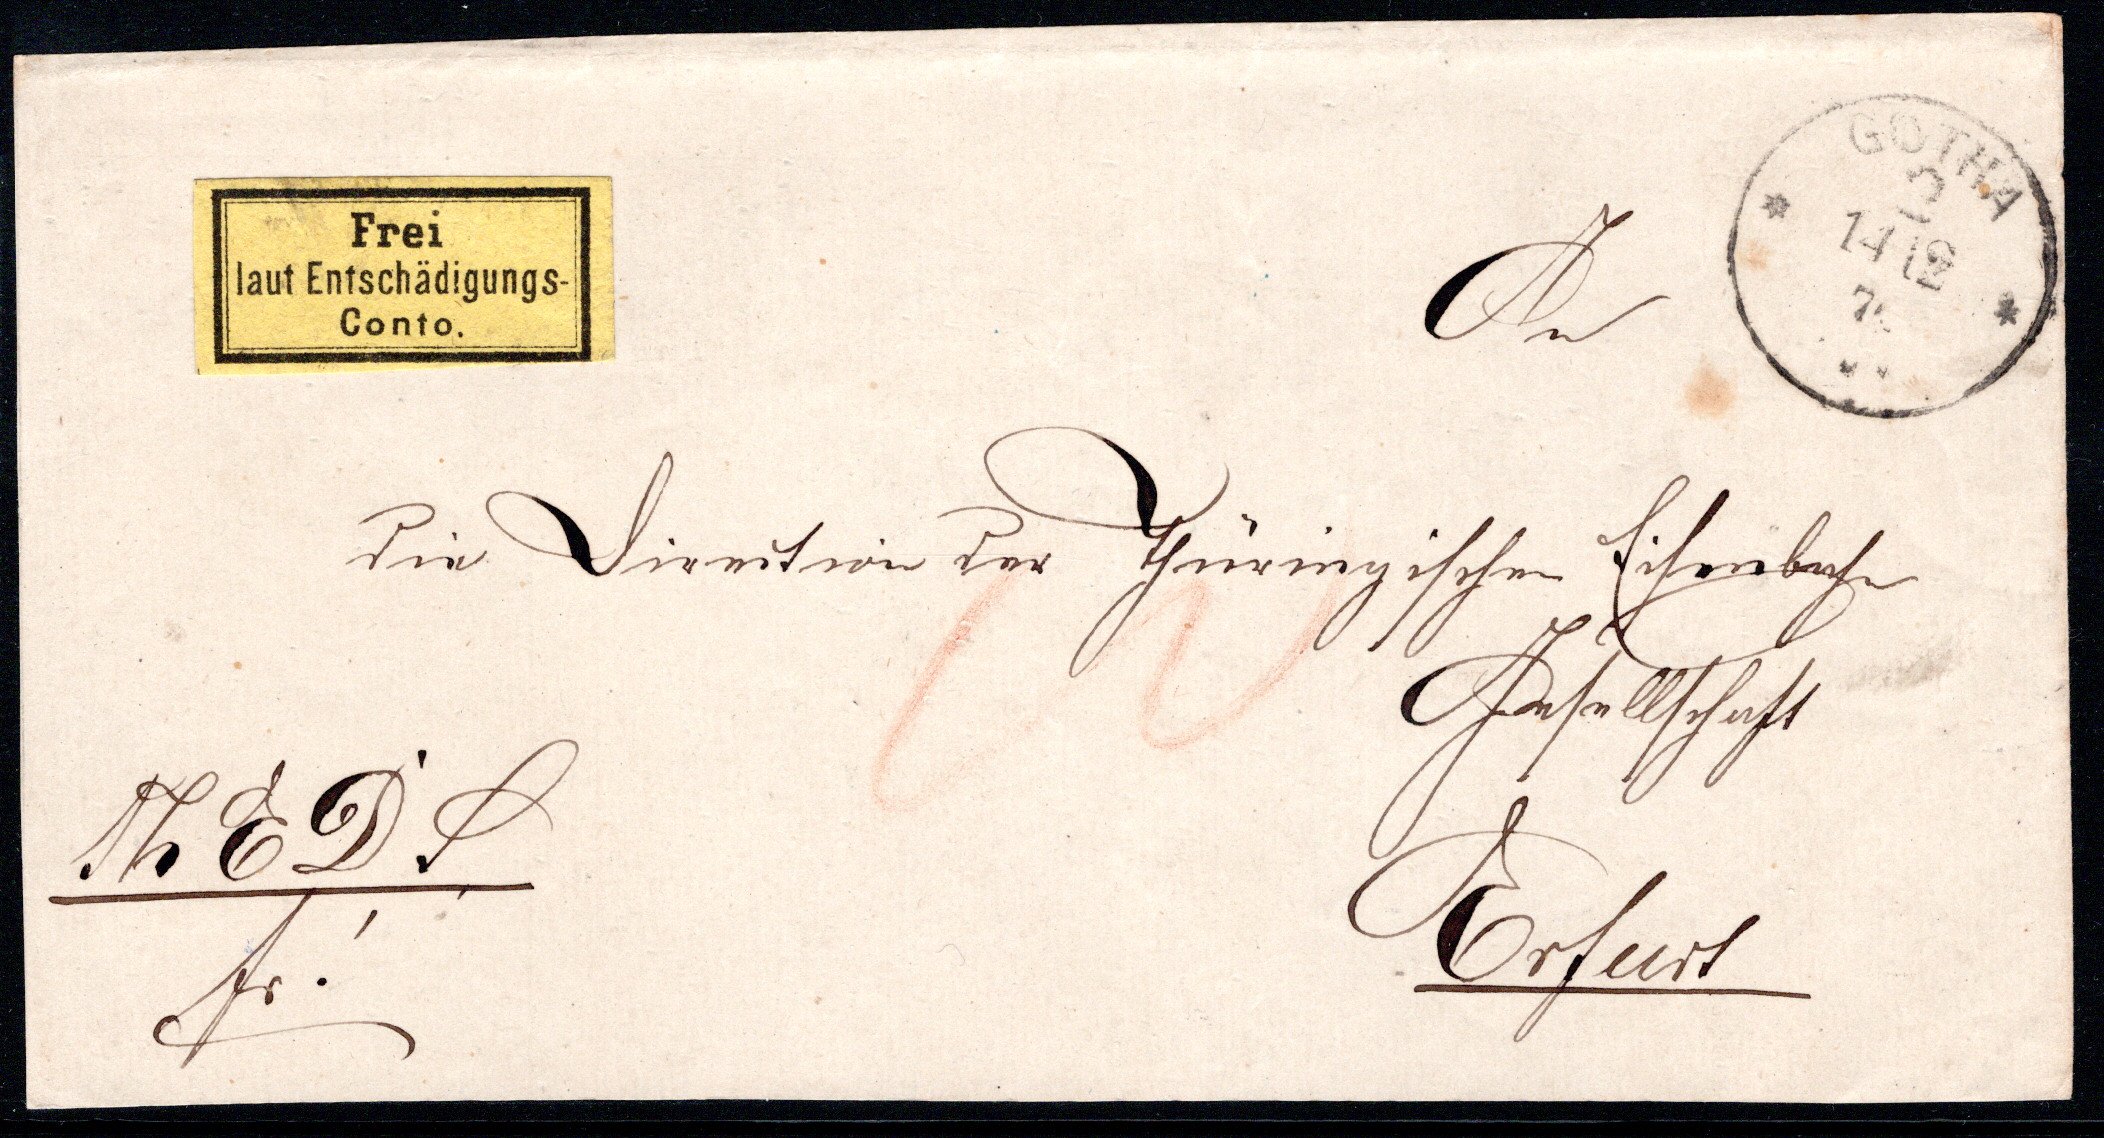 Frei
laut Entschädigungs-
Conto.
GOTHA
14 12
An
die Direction der Thüringischen Eisenbahn
Gesellschaft
Erfurt
Th E D S
fr.